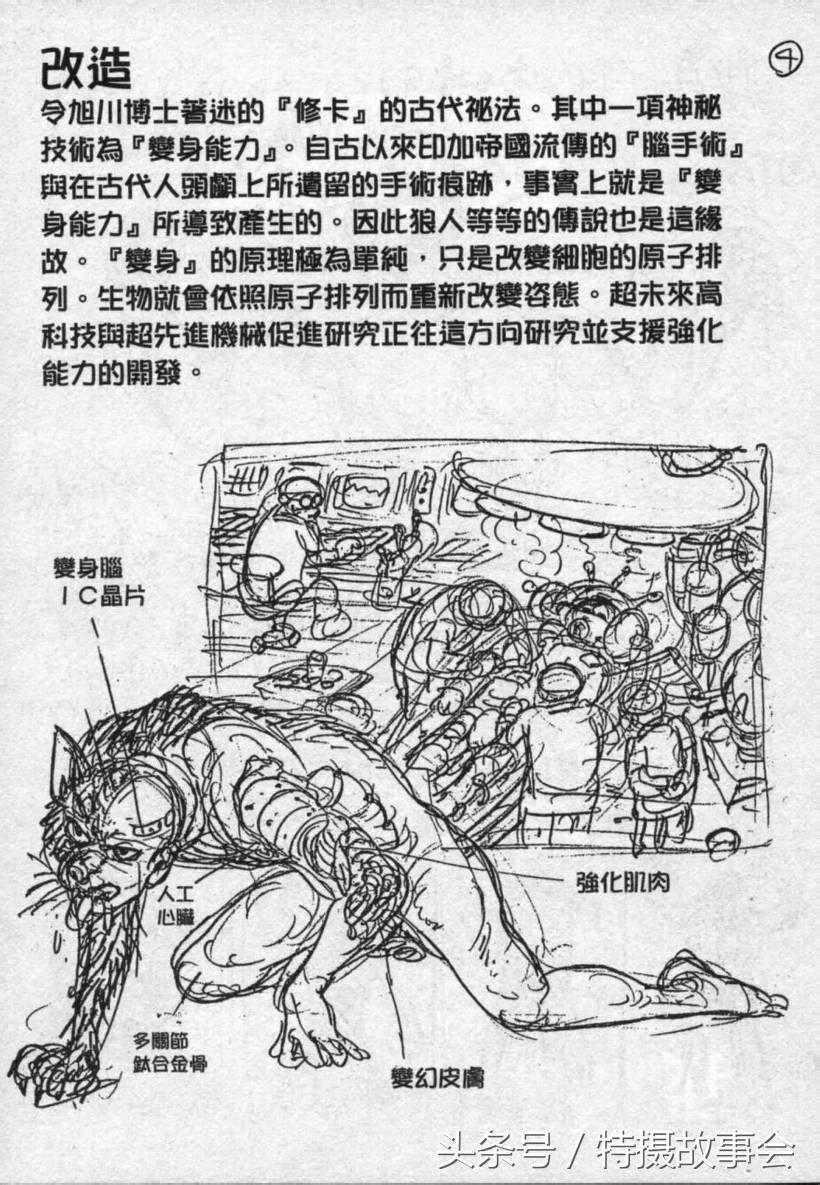 改造
④
令旭川博士著迷的『修卡』的古代祕法。其中一項神秘
技術為『變身能力』。自古以來印加帝國流傳的『腦手術』
與在古代人頭顱上所遺留的手術痕跡，事實上就是『變
身能力』所導致產生的。因此狼人等等的傳說也是這緣
故。『變身』的原理極為單純，只是改變細胞的原子排
列。生物就會依照原子排列而重新改變姿態。超未來高
科技與超先進機械促進研究正往這方向研究並支援強化
能力的開發。
變身腦
IC晶片
人工
心臟
強化肌肉
多關節
鈦合金骨
變幻皮膚
头条号 / 特摄故事会